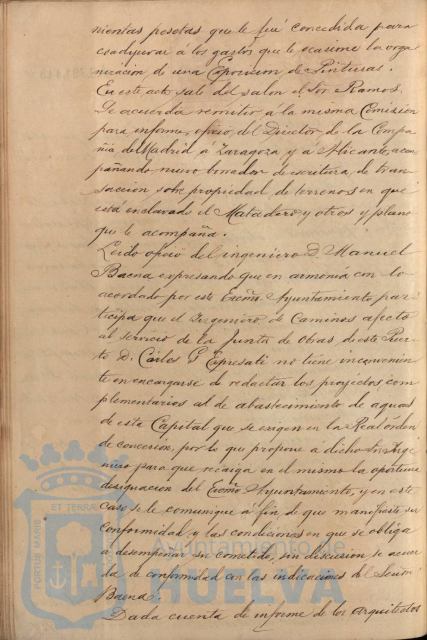 nientas pesetas que le fué concedida para
coadyuvar á los gastos que le ocasione la orga
nización de una Exposicion de Pinturas.
En este acto sale del salon el Sor Ramos.
Se acuerda remitir á la misma Comisión
para informe, oficio del Director de la Compa
ñia de Madrid á Zaragoza y á Alicante, acom
pañando nuevo borrador de escritura de tran
sacción sobre propiedad de terrenos en que
está enclavado el Matadero y otros y plano
que le acompaña.
Leido oficio del ingeniero D. Manuel
Baena expresando que en armonía con lo
acordado por este Excmo. Ayuntamiento, par
ticipa que el Ingeniero de Caminos afecto
al servicio de la Junta de Obras de este Puer
to D. Carlos no tiene inconvenien
te en encargarse de redactar los proyectos com
plementarios al de abastecimiento de aguas
de esta Capital que se exigen en la Real orden
de concesión, por lo que propone á dicho Inge
niero para que recaiga en el mismo la oportuna
designacion del Excmo. Ayuntamiento, y en este
caso se le comunique á fin de que manifieste su
conformidad y las condiciones en que se obliga
á desempeñar su cometido, sin discusion se acuer
da de conformidad con las indicaciones del Señor
Baena.
Dada cuenta de informe de los Arquitectos
PORTUS MARIS ET TERRAE
Ayuntamiento de
HUELVA